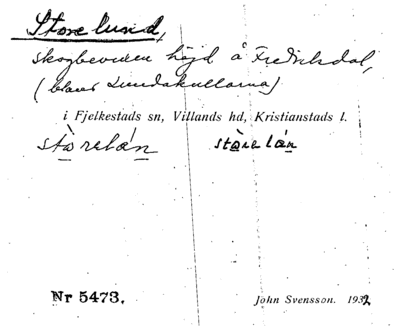 Storelund,
skogbevuxen höjd å Fredriksdal,
(bland Lundakullarna)
i Fjelkestads sn, Villands hd, Kristianstads l.
stòrelán stòrelán
Nr 5473. John Svensson. 1932